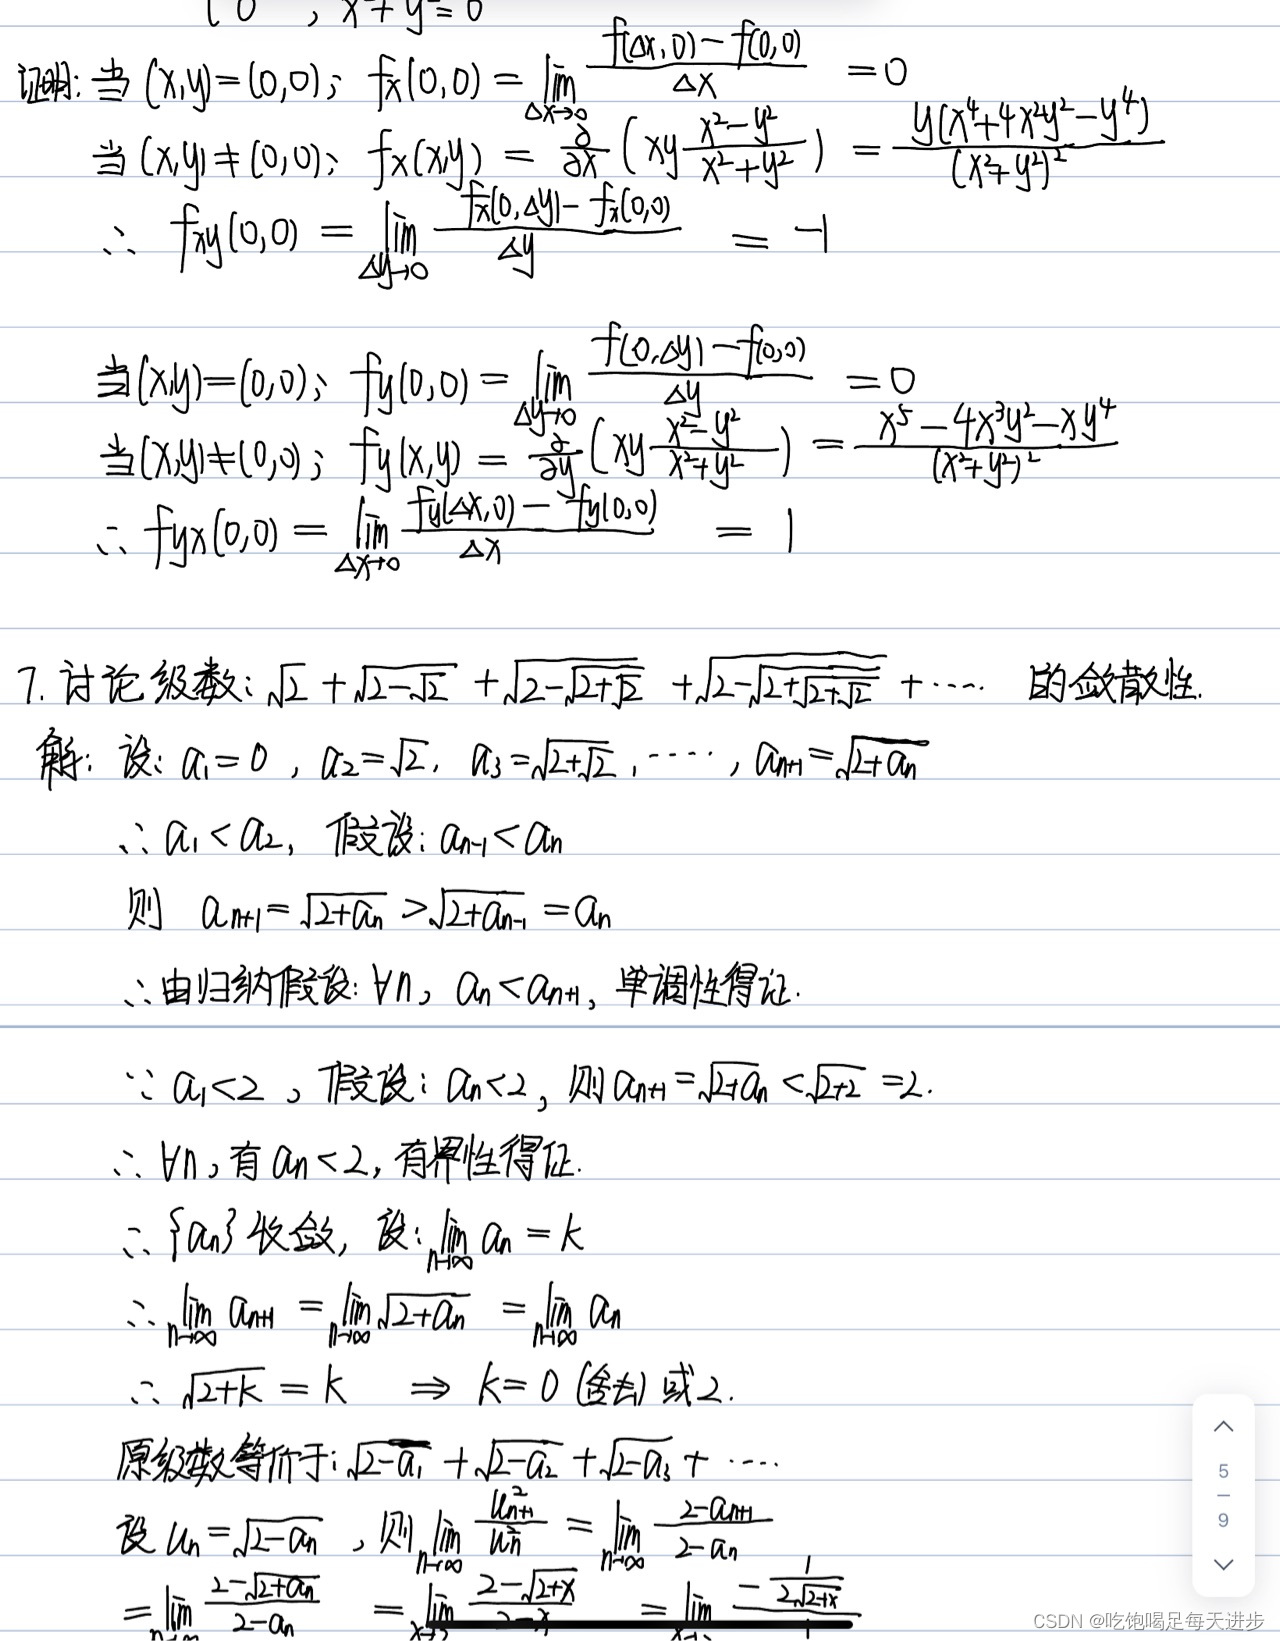 { 0 , x²+y²=0
证明: 当 (x,y)=(0,0); fx(0,0) = lim_{Δx→0} (f(Δx,0)-f(0,0))/Δx = 0
当 (x,y)≠(0,0); fx(x,y) = ∂/∂x (xy (x²-y²)/(x²+y²)) = y(x⁴+4x²y²-y⁴)/(x²+y²)²
∴ fxy(0,0) = lim_{Δy→0} (fx(0,Δy)-fx(0,0))/Δy = -1
当(x,y)=(0,0); fy(0,0) = lim_{Δy→0} (f(0,Δy)-f(0,0))/Δy = 0
当(x,y)≠(0,0); fy(x,y) = ∂/∂y (xy (x²-y²)/(x²+y²)) = (x⁵-4x³y²-xy⁴)/(x²+y²)²
∴ fyx(0,0) = lim_{Δx→0} (fy(Δx,0)-fy(0,0))/Δx = 1
7. 讨论级数: √2 + √(2-√2) + √(2-√(2+√2)) + √(2-√(2+√(2+√2))) + ···· 的敛散性.
解: 设: a₁=0, a₂=√2, a₃=√(2+√2), ····, aₙ₊₁=√(2+aₙ)
∴ a₁<a₂, 假设: aₙ₋₁<aₙ
则 aₙ₊₁=√(2+aₙ)>√(2+aₙ₋₁)=aₙ
∴由归纳假设: ∀n, aₙ<aₙ₊₁, 单调性得证.
∵ a₁<2, 假设: aₙ<2, 则aₙ₊₁=√(2+aₙ)<√(2+2)=2.
∴ ∀n, 有 aₙ<2, 有界性得证.
∴ {aₙ}收敛, 设: lim_{n→∞} aₙ = k
∴ lim_{n→∞} aₙ₊₁ = lim_{n→∞} √(2+aₙ) = lim_{n→∞} aₙ
∴ √(2+k) = k ⇒ k=0 (舍去) 或 2.
原级数等价于: √(2-a₁) + √(2-a₂) + √(2-a₃) + ····
设 uₙ=√(2-aₙ), 则 lim_{n→∞} uₙ₊₁²/uₙ² = lim_{n→∞} (2-aₙ₊₁)/(2-aₙ)
= lim_{n→∞} (2-√(2+aₙ))/(2-aₙ) = lim_{x→2} (2-√(2+x))/(2-x) = lim (-1/(2√(2+x)))/
5
9
CSDN @吃饱喝足每天进步